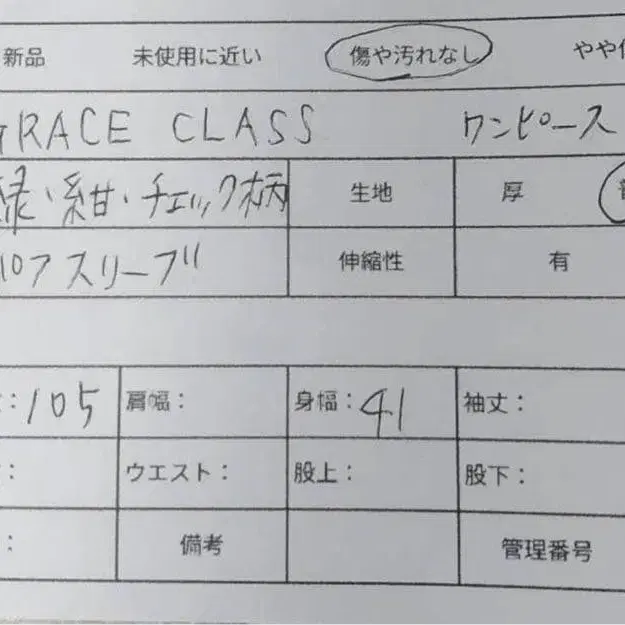 新品 未使用に近い 傷や汚れなし やや
GRACE CLASS ワンピース
緑・紺・チェック柄 生地 厚
パフスリーブ 伸縮性 有
：105 肩幅： 身幅：41 袖丈：
： ウエスト： 股上： 股下：
： 備考 管理番号